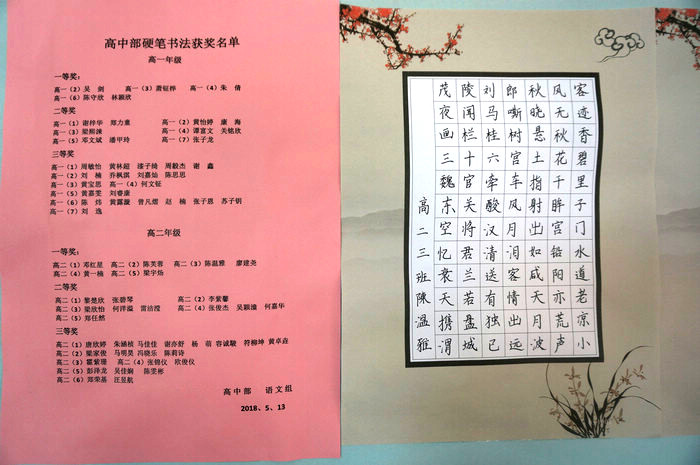 高中部硬笔书法获奖名单
高一年级
一等奖:
高一(2)吴 剑 高一(3)萧钲桦 高一(4)朱 倩
高一(6)陈守欣 林颖欣
二等奖
高一(1)谢梓华 郑力童 高一(2)黄怡婷 康 海
高一(3)梁熙涑 高一(4)谭富文 关铭欣
高一(5)邓文斌 潘甲玲 高一(7)张子龙
三等奖
高一(1)周敏怡 黄林超 漆子绮 周毅杰 谢 鑫
高一(2)刘 楠 乔枫淇 刘嘉灿 陈思思
高一(3)黄宝思 高一(4)何文钲
高一(5)黄嘉雯 刘睿康
高一(6)陈 炜 黄露漩 曾凡熠 赵 楠 张子恩 苏子钥
高一(7)刘 逸
高二年级
一等奖:
高二(1)邓红星 高二(2)陈芙蓉 高二(3)陈温雅 廖建尧
高二(4)黄一楠 高二(5)梁宇炀
二等奖
高二(1)黎楚欣 张碧琴 高二(2)李紫馨
高二(3)梁欣怡 何洋溢 雷洁滢 高二(4)张俊杰 吴颖潼 何嘉华
高二(5)郑任然
三等奖
高二(1)唐欣婷 朱涵桢 马佳佳 谢亦舒 杨 萌 容诚骏 符柳坤 黄卓垚
高二(2)梁家俊 马明昊 冯晓乐 陈莉诗
高二(3)霍紫珊 高二(4)张锦仪 欧俊仪
高二(5)彭泽龙 吴佳娴 陈雯彬
高二(6)郑荣基 汪昱航
高中部 语文组
2018、5、13
茂陵刘郎秋风客
夜闻马嘶晓无迹
画栏桂树悬秋香
三十六宫土花碧
魏官牵车指千里
东关酸风射眸子
空将汉月出宫门
忆君清泪如铅水
衰兰送客咸阳道
天若有情天亦老
携盘独出月荒凉
渭城已远波声小
高二三班陈温雅